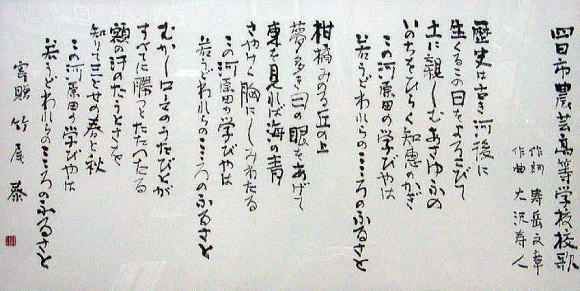 四日市農芸高等学校校歌
作詞 寿岳文章
作曲 大沢寿人
歴史は古き河後に
生くるこの日をよろこびて
土に親しむあさゆふの
いのちをひらく知恵のかぎ
この河原田の学びやは
若うどわれらのこころのふるさと
柑橘みのる丘の上
夢多き日の眼をあげて
東を見れば海の青
さやけく胸にしみわたる
この河原田の学びやは
若うどわれらのこころのふるさと
むかし
すべてに勝つとたたへたる
額の汗のたうとさを
知りて三とせの春と秋
この河原田の学びやは
若うどわれらのこころのふるさと
寄贈 竹尾